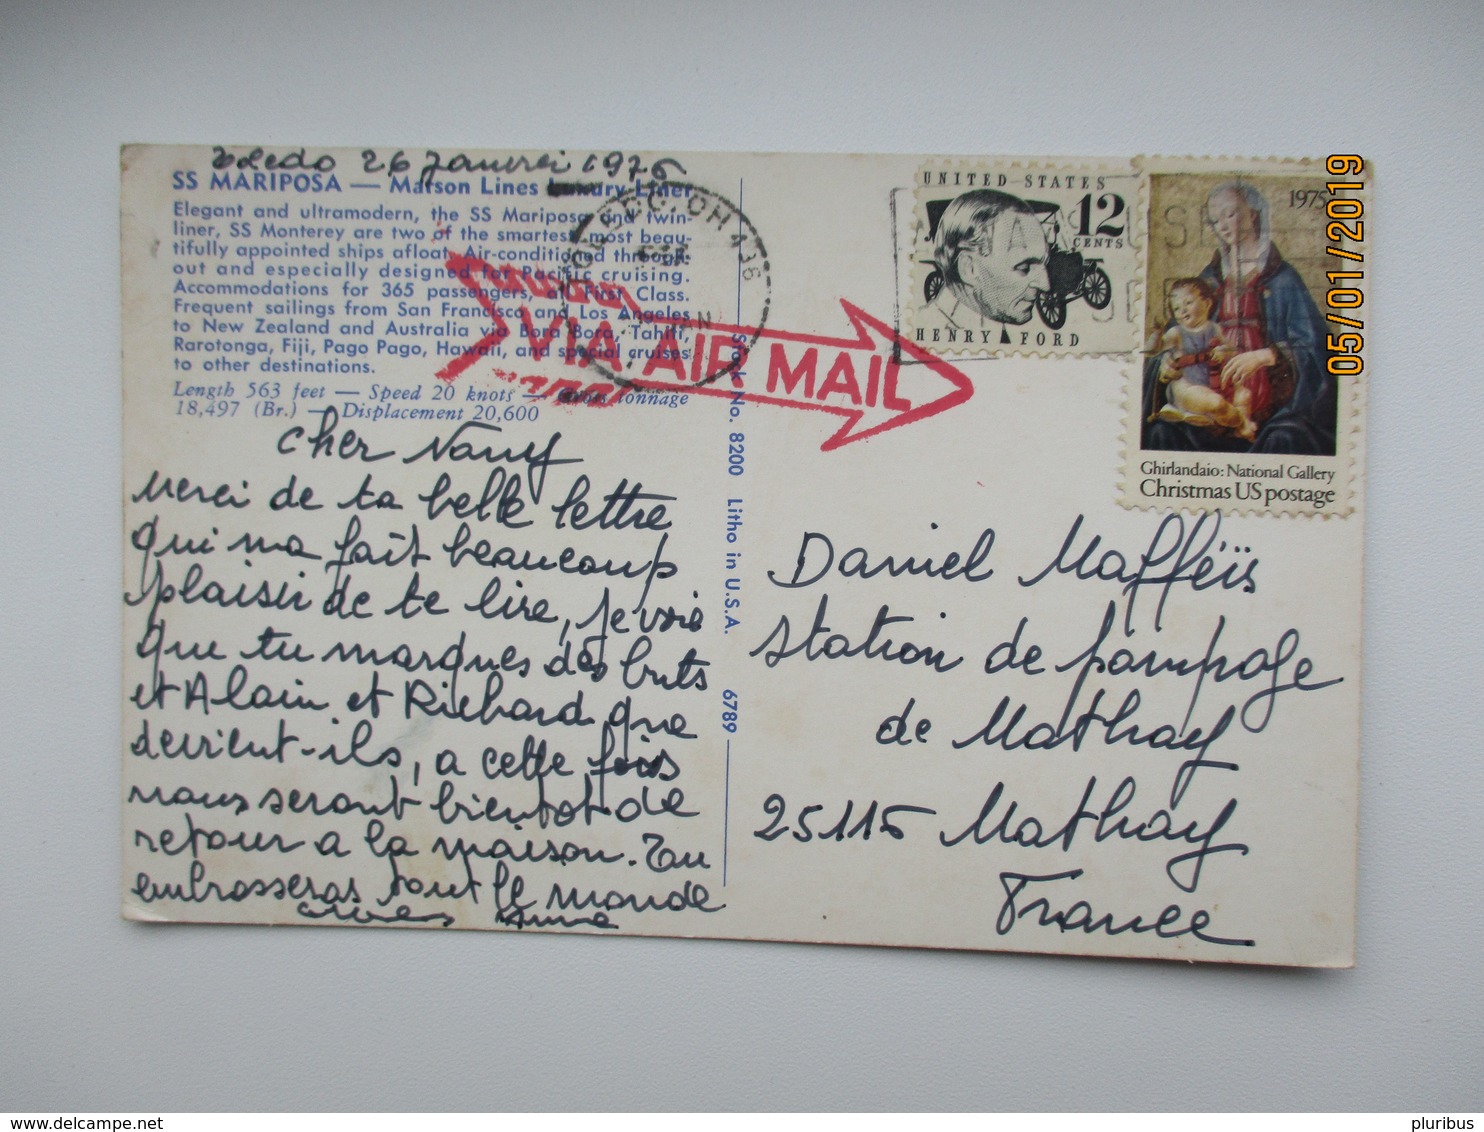 Toledo 26 Janvrei 1976
SS MARIPOSA — Matson Lines Luxury Liner
Elegant and ultramodern, the SS Mariposa and twin-
liner, SS Monterey are two of the smartest, most beau-
tifully appointed ships afloat. Air-conditioned through-
out and especially designed for Pacific cruising.
Accommodations for 365 passengers, all First Class.
Frequent sailings from San Francisco and Los Angeles
to New Zealand and Australia via Bora Bora, Tahiti,
Rarotonga, Fiji, Pago Pago, Hawaii, and special cruises
to other destinations.
Length 563 feet — Speed 20 knots — Gross tonnage
18,497 (Br.) — Displacement 20,600
cher Nany
Merci de ta belle lettre
qui ma fait beaucoup
plaisir de te lire, je voie
que tu marques des buts
et Alain et Richard que
devrient-ils, a cette fois
nous seront bientot de
retour a la maison. Tu
embrasseras tout le monde
Anne
Stock No. 8200 Litho in U.S.A. 6789
VIA AIR MAIL
UNITED STATES
12
CENTS
HENRY FORD
1975
Ghirlandaio: National Gallery
Christmas US postage
Daniel Mafféïs
station de pompage
de Mathay
25115 Mathay
France
05/01/2019
pluribus